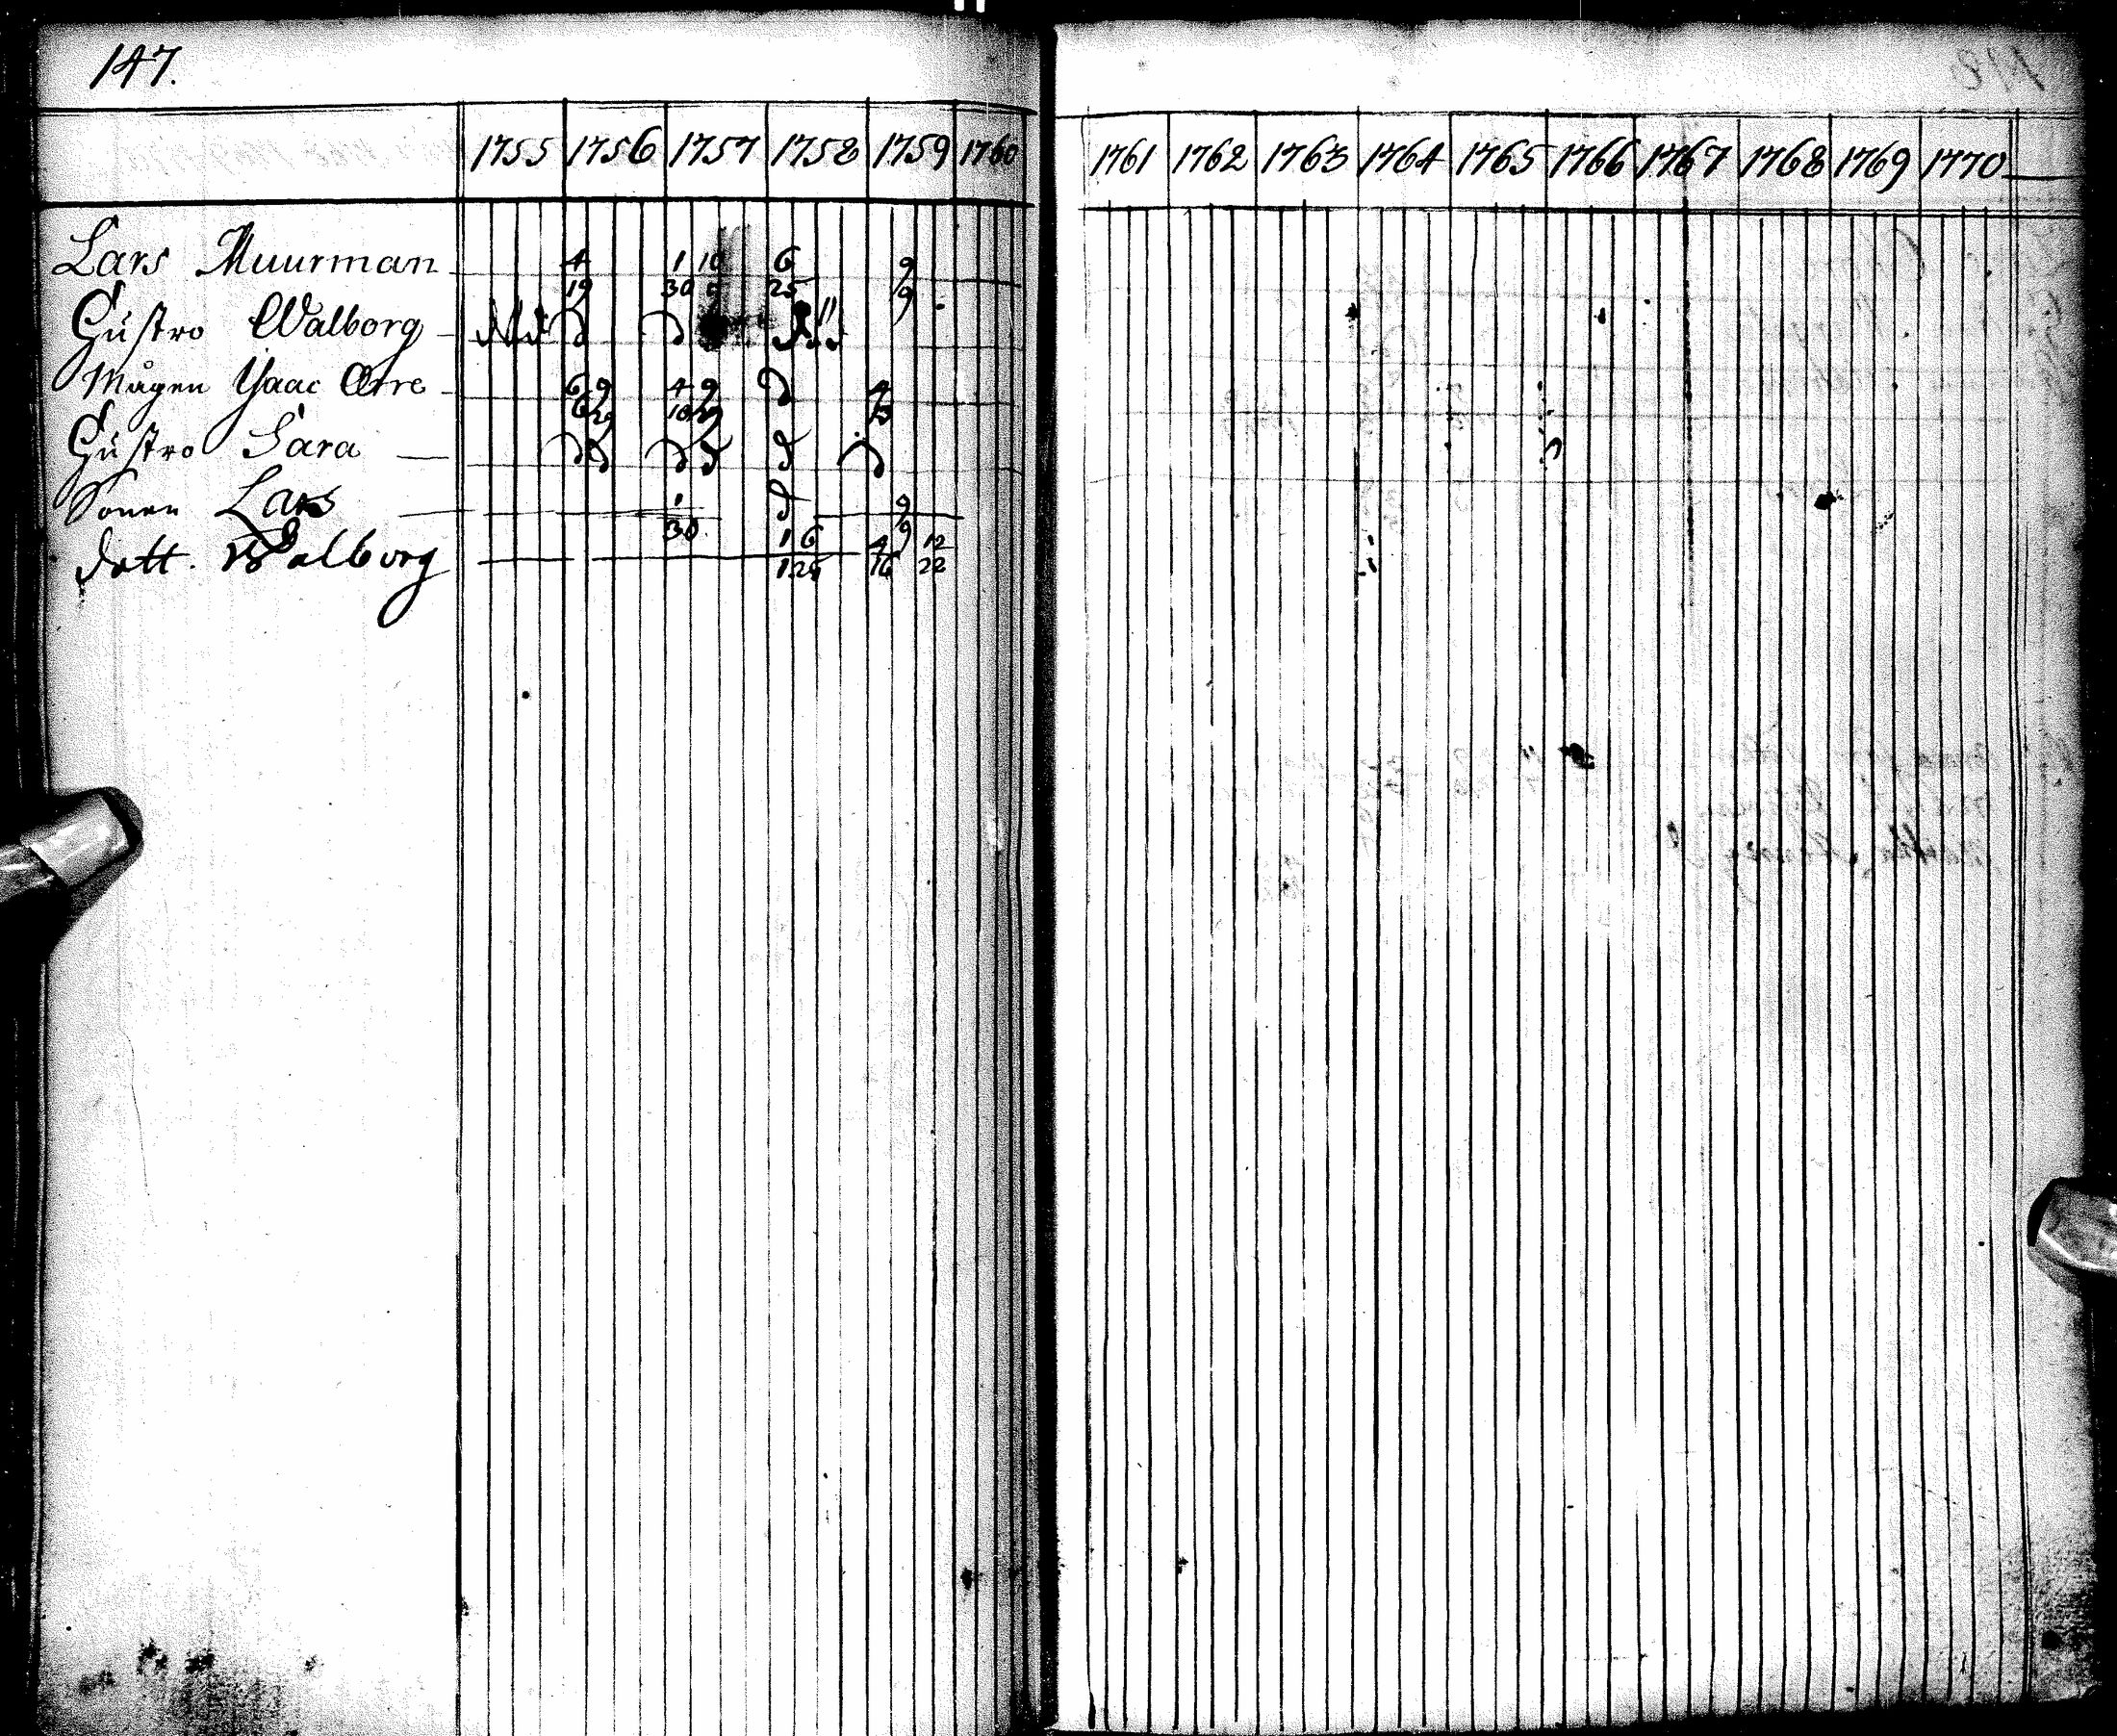 147.
1755 1756 1757 1758 1759 1760 1761 1762 1763 1764 1765 1766 1767 1768 1769 1770
Lars Muurman 4 1 10 6 9
19 30 9 25 9
Hustro Walborg
Mågen Isaac Orre 6 9 4 9 4
6 29 10 29 15
Hustro Sara
Sonen Lars 1 9
30 9
dott. Walborg 1 6 4 12
1 25 16 22